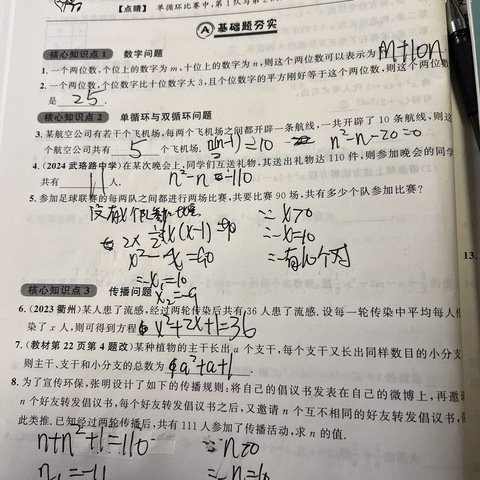 【点睛】 单循环比赛中,第1队与第2
A 基础题夯实
核心知识点1 数字问题
1. 一个两位数,个位上的数字为 m,十位上的数字为 n,则这个两位数可以表示为 m+10n
2. 一个两位数,个位数字比十位数字大3,且个位数字的平方刚好等于这个两位数,则这个两位数
是 25.
核心知识点2 单循环与双循环问题
3. 某航空公司有若干个飞机场,每两个飞机场之间都开辟一条航线,一共开辟了 10 条航线,则这
个航空公司共有 5 个飞机场. n(n-1)=10 n²-n-20=0
4. (2024 武珞路中学)在某次晚会上,同学们互送礼物,其送出礼物达 110 件,则参加晚会的同学
共有 11 人. n²-n=110
5. 参加足球联赛的每两队之间都进行两场比赛,共要比赛 90 场,共有多少个队参加比赛?
∵x>0
2x ½x(x-1)=90 ∴x=10
x²-x=90 ∴有10个对
∴x₁=10
核心知识点3 传播问题 x₂=-9
6. (2023 衢州)某人患了流感,经过两轮传染后共有 36 人患了流感.设每一轮传染中平均每人传
染了 x 人,则可得到方程 x²+2x+1=36
7. (教材第 22 页第 4 题改)某种植物的主干长出 a 个支干,每个支干又长出同样数目的小分支
则主干、支干和小分支的总数为 a²+a+1
8. 为了宣传环保,张明设计了如下的传播规则:将自己的倡议书发表在自己的微博上,再邀请
n 个好友转发倡议书,每个好友转发倡议书之后,又邀请 n 个互不相同的好友转发倡议书,依
此类推.已知经过两轮传播后,共有 111 人参与了传播活动,求 n 的值.
n+n²+1=110 ∵n>0
n₁=-11 ∴n=10
13.